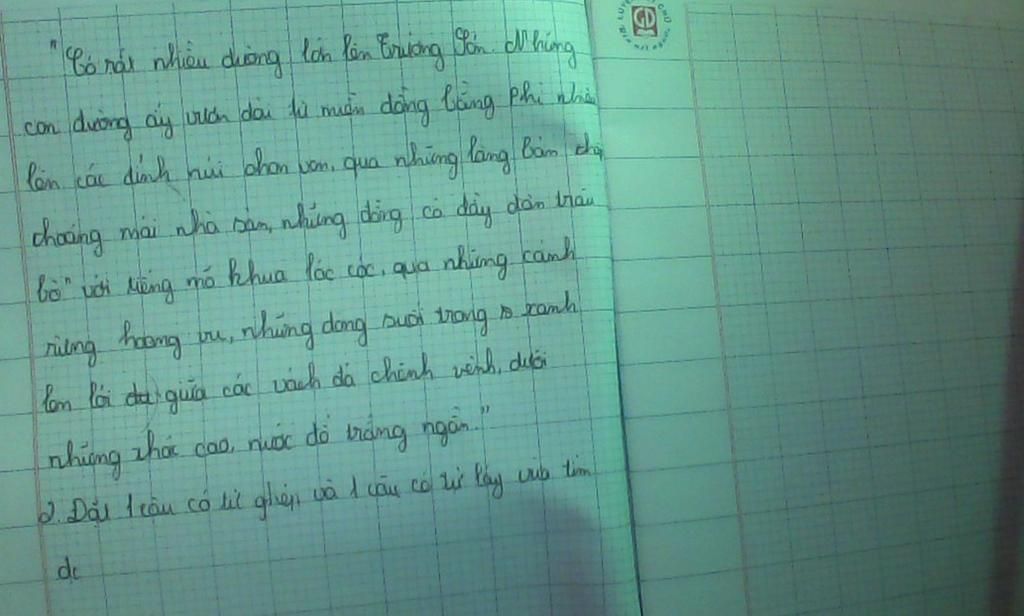 "Có rất nhiều đường lớn lên Trường Sơn. Những
con đường ấy vươn dài từ miền đồng bằng phì nhiêu
lên các đỉnh núi chon von, qua những làng bản
choáng mái nhà sàn, những đồng cỏ đầy đàn trâu
bò" với tiếng mõ khua lốc cốc, qua những cánh
rừng hoang vu, những dòng suối trong xanh
len lỏi giữa các vách đá chênh vênh, dưới
những thác cao, nước đổ trắng ngần."
2. Đặt 1 câu có từ ghép và 1 câu có từ láy vừa tìm
đc